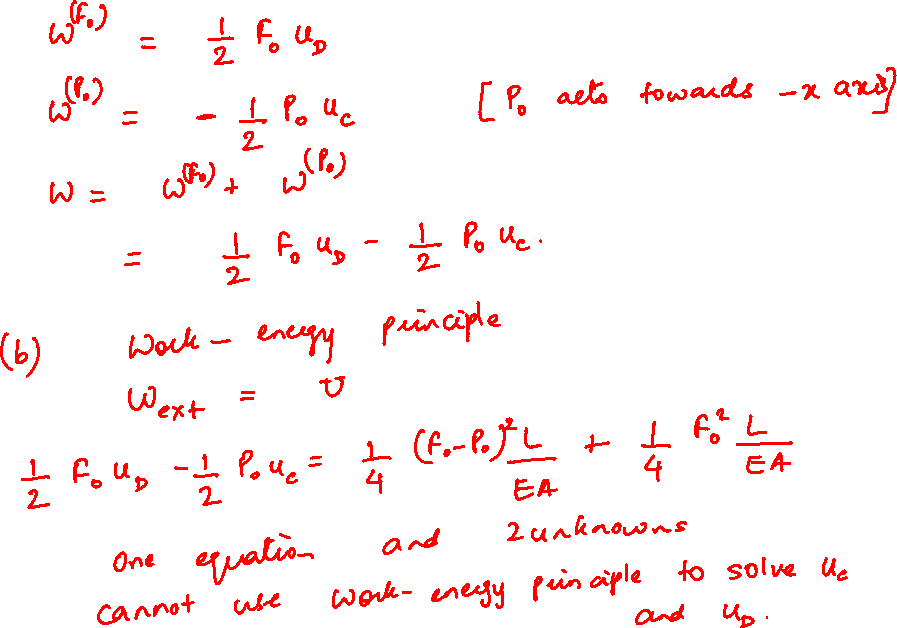 W^(F₀) = 1/2 F₀ u_D
W^(P₀) = - 1/2 P₀ u_c [P₀ acts towards -x axis]
W = W^(F₀) + W^(P₀)
= 1/2 F₀ u_D - 1/2 P₀ u_c.
(b) Work-energy principle
W_ext = U
1/2 F₀ u_D - 1/2 P₀ u_c = 1/4 (F₀-P₀)² L/EA + 1/4 F₀² L/EA
One equation and 2 unknowns
cannot use work-energy principle to solve u_c
and u_D.